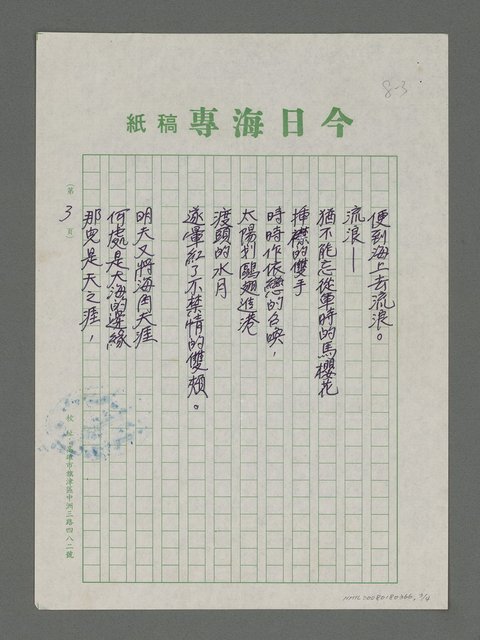 8-3
今日海專稿紙
便到海上去流浪。
流浪——
猶不能忘從軍時的馬櫻花
揮襟的雙手
時時作依戀的召喚，
太陽划鷗翅進港
渡頭的水月
遂暈紅了不禁情的雙頰。
明天又將海角天涯
何處是大海的邊緣
那兒是天之涯，
（第3頁）
校址：高雄市旗津區中洲三路四八二號
NMTL20080180366, 3/4